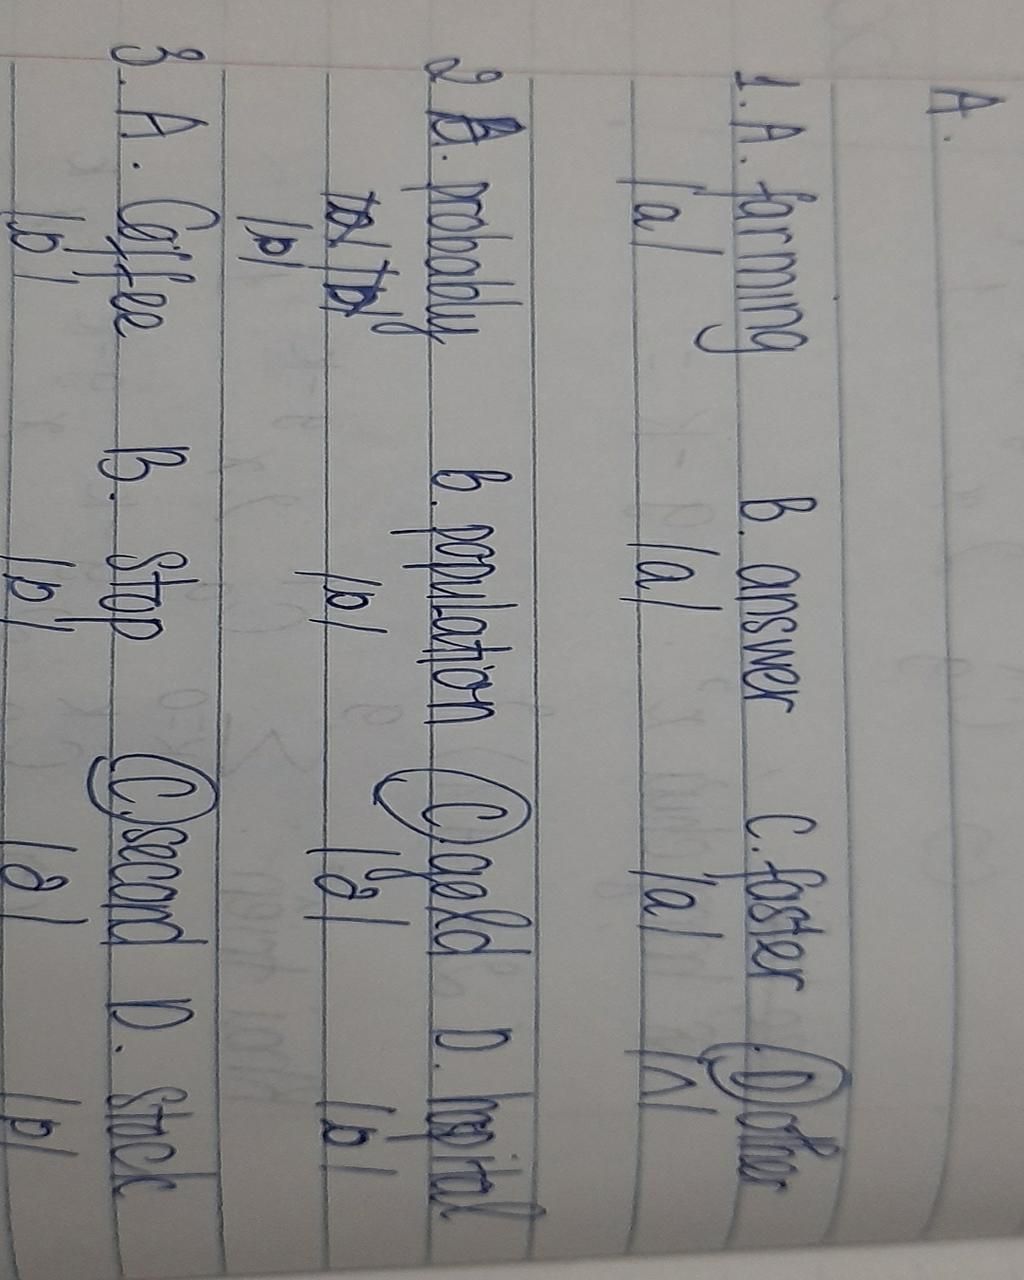 A.
1. A. farming B. answer C. faster D other
/a/ /a/ /a/ /ʌ/
2 A. probably b. population C gold D. hospital
/ɒ/ /ɒ/ /ə/ /ɒ/
3. A. Coffee B. stop C. second D. stock
/ɒ/ /ɒ/ /ə/ /ɒ/